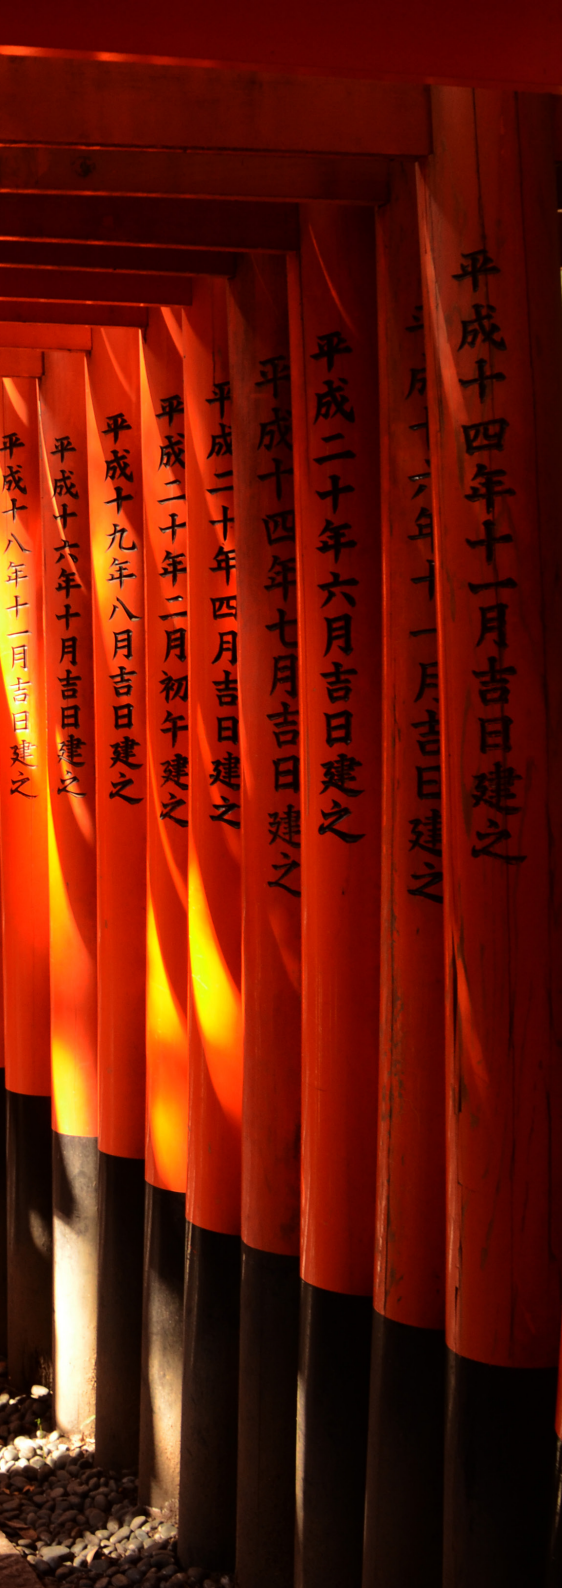 平成十四年十一月吉日建之
平成十六年十一月吉日建之
平成二十年六月吉日建之
平成十四年七月吉日建之
平成二十年四月吉日建之
平成二十年二月初午建之
平成十九年八月吉日建之
平成十六年十月吉日建之
平成十八年十一月吉日建之